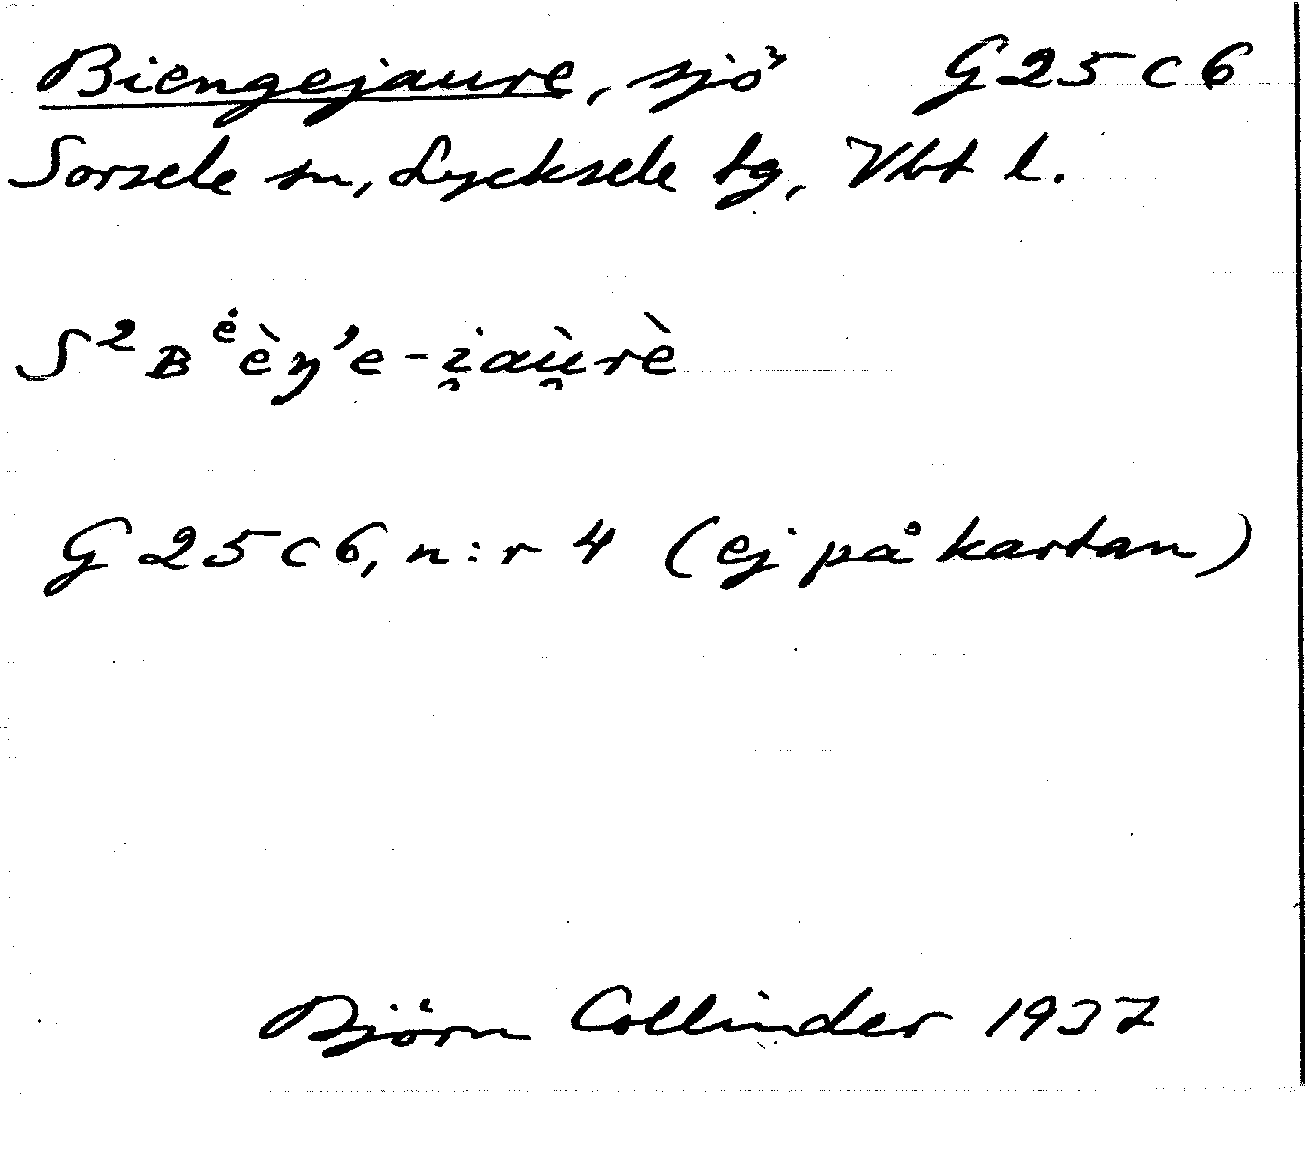 Biengejaure, sjö G25c6
Sorsele sn, Lycksele tg, Vbt l.
S² ʙᵉ̇èŋ'e-i̯aù̯rè
G25c6, n:r 4 (ej på kartan)
Björn Collinder 1937